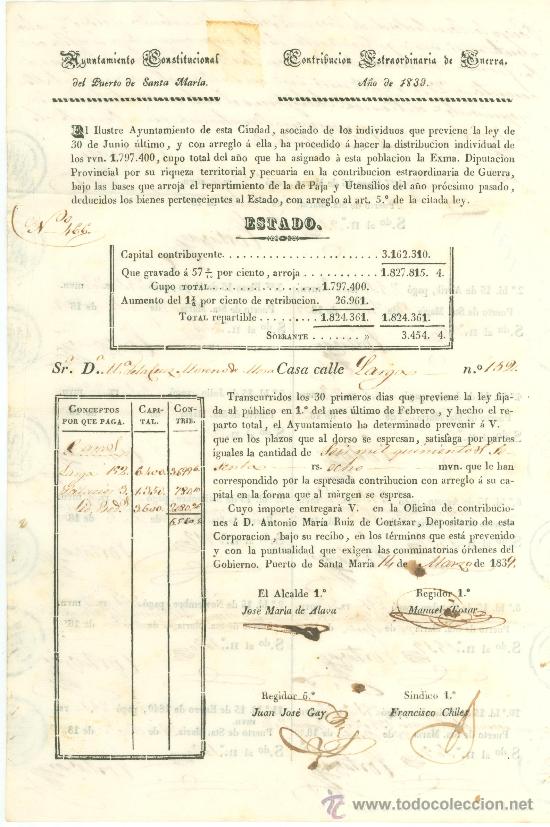 Ayuntamiento Constitucional
del Puerto de Santa María.
Contribucion Estraordinaria de Guerra.
Año de 1839.
El Ilustre Ayuntamiento de esta Ciudad, asociado de los individuos que previene la ley de
30 de Junio último, y con arreglo á ella, ha procedido á hacer la distribucion individual de
los rvn. 1.797.400, cupo total del año que ha asignado á esta poblacion la Exma. Diputacion
Provincial por su riqueza territorial y pecuaria en la contribucion estraordinaria de Guerra,
bajo las bases que arroja el repartimiento de la de Paja y Utensilios del año prócsimo pasado,
deducidos los bienes pertenecientes al Estado, con arreglo al art. 5.º de la citada ley.
Nº 466.
ESTADO.
Capital contribuyente. 3.162.310.
Que gravado á 57 por ciento, arroja 1.827.815. 4.
Cupo total 1.797.400.
Aumento del 1½ por ciento de retribucion. 26.961.
Total repartible 1.824.361. 1.824.361.
Sobrante » 3.454. 4.
Sr. D.ª Mª Moreno de Mora Casa calle Larga n.º 152.
Conceptos por que paga. Capital. Contrib.
Larga 152. 6400
3. 1350 780
3600 2080
Transcurridos los 30 primeros dias que previene la ley fijada
al público en 1.º del mes último de Febrero, y hecho el reparto
total, el Ayuntamiento ha determinado prevenir á V.
que en los plazos que al dorso se espresan, satisfaga por partes
iguales la cantidad de Seis mil quinientos sesenta
rs. ocho mvn. que le han
correspondido por la espresada contribucion con arreglo á su
capital en la forma que al márgen se espresa.
Cuyo importe entregará V. en la Oficina de contribuciones
á D. Antonio María Ruiz de Cortázar, Depositario de esta
Corporacion, bajo su recibo, en los términos que está prevenido
y con la puntualidad que exigen las conminatorias órdenes del
Gobierno. Puerto de Santa María 14 de Marzo de 1839.
El Alcalde 1.º
José María de Alava
Regidor 1.º
Manuel Tosar
Regidor 6.º
Juan José Gay
Síndico 1.º
Francisco Chiles
www.todocoleccion.net